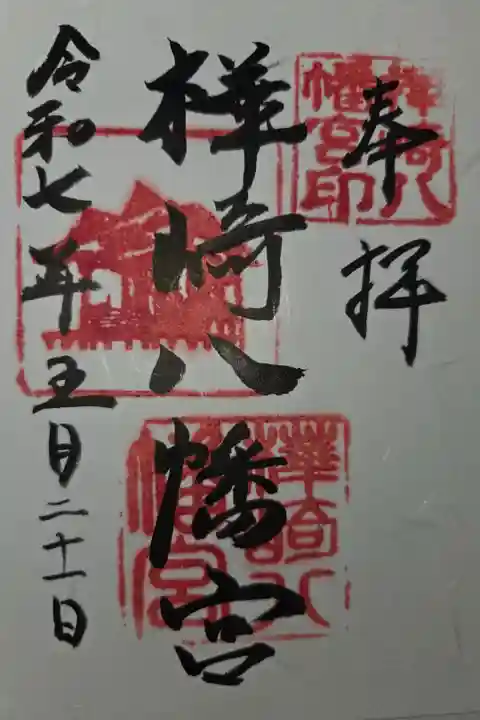 奉拝
樺崎八幡宮
令和七年五月二十一日
樺崎八
幡宮印
樺崎八
幡宮